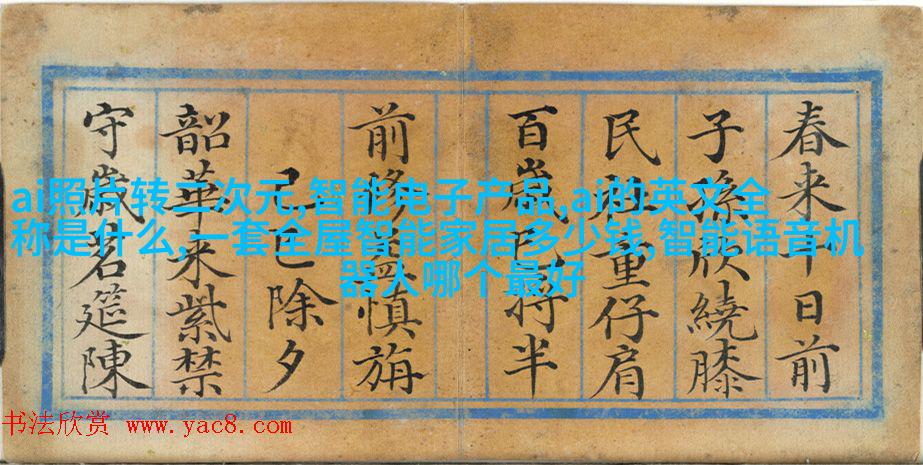 春来十日前
子孫欣繞膝
民社重仔肩
百歲已将半
前修益慎旃
己巳除夕
韶華来紫禁
守歲茗筵陳
ai照片转二次元,智能电子产品,ai的英文全
称是什么,一套全屋智能家居多少钱,智能语音机
器人哪个最好
书法欣赏 www.yac8.com